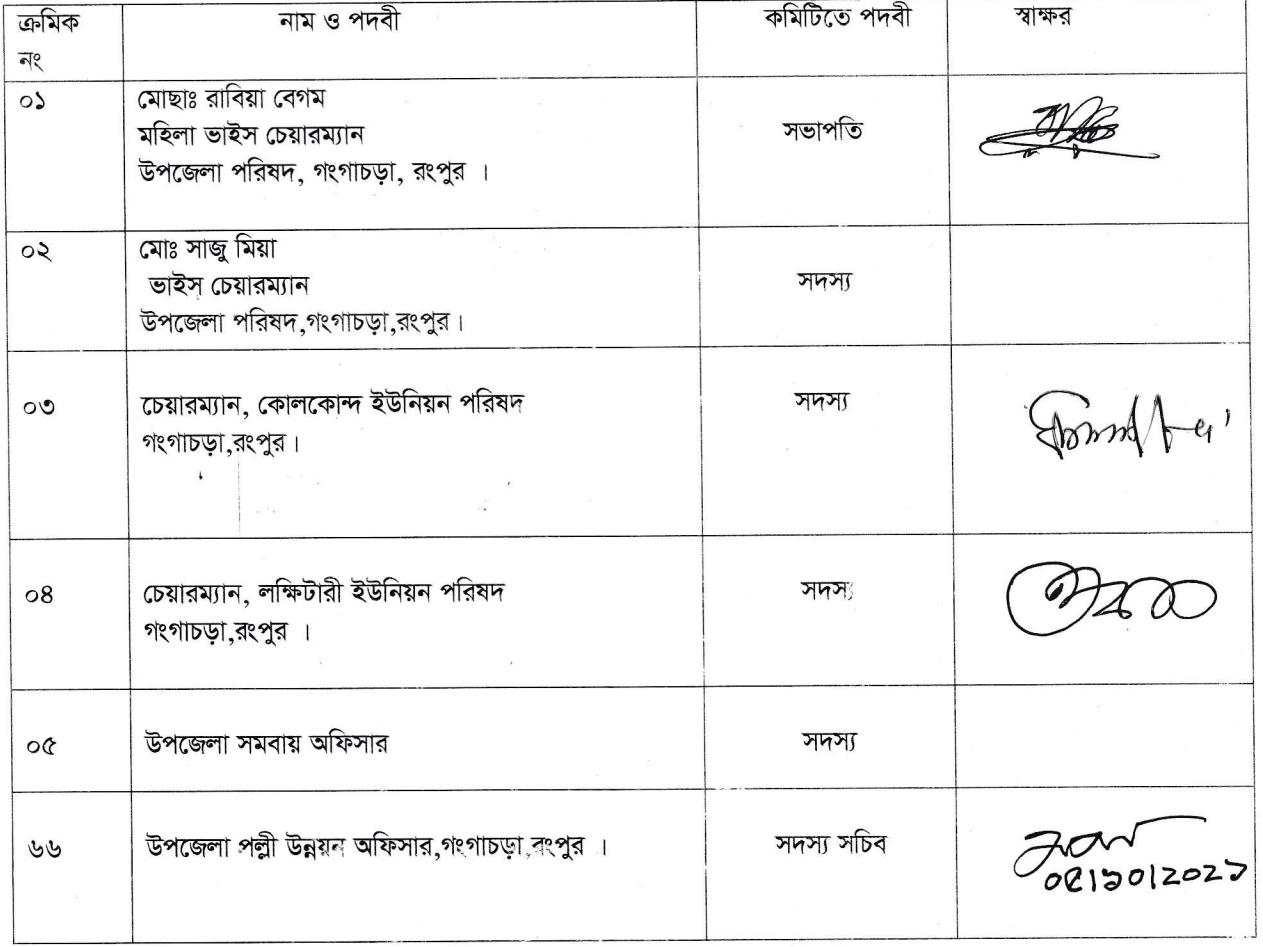 ক্রমিক নং	নাম ও পদবী	কমিটিতে পদবী	স্বাক্ষর
০১	মোছাঃ রাবিয়া বেগম	সভাপতি
মহিলা ভাইস চেয়ারম্যান
উপজেলা পরিষদ, গংগাচড়া, রংপুর ।
০২	মোঃ সাজু মিয়া	সদস্য
ভাইস চেয়ারম্যান
উপজেলা পরিষদ,গংগাচড়া,রংপুর।
০৩	চেয়ারম্যান, কোলকোন্দ ইউনিয়ন পরিষদ	সদস্য
গংগাচড়া,রংপুর।
০৪	চেয়ারম্যান, লক্ষিটারী ইউনিয়ন পরিষদ	সদস্য
গংগাচড়া,রংপুর ।
০৫	উপজেলা সমবায় অফিসার	সদস্য
৬৬	উপজেলা পল্লী উন্নয়ন অফিসার,গংগাচড়া,রংপুর ।	সদস্য সচিব
০৫।১০।২০২১